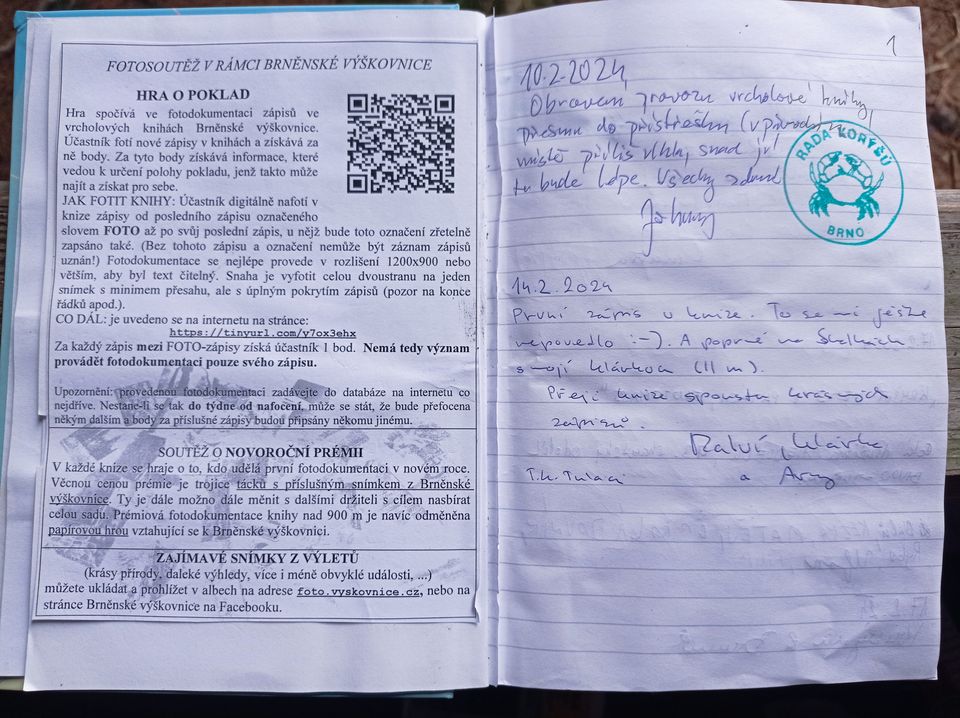 FOTOSOUTĚŽ V RÁMCI BRNĚNSKÉ VÝŠKOVNICE
HRA O POKLAD
Hra spočívá ve fotodokumentaci zápisů ve
vrcholových knihách Brněnské výškovnice.
Účastník fotí nové zápisy v knihách a získává za
ně body. Za tyto body získává informace, které
vedou k určení polohy pokladu, jenž takto může
najít a získat pro sebe.
JAK FOTIT KNIHY: Účastník digitálně nafotí v
knize zápisy od posledního zápisu označeného
slovem FOTO až po svůj poslední zápis, u nějž bude toto označení zřetelně
zapsáno také. (Bez tohoto zápisu a označení nemůže být záznam zápisů
uznán!) Fotodokumentace se nejlépe provede v rozlišení 1200x900 nebo
větším, aby byl text čitelný. Snaha je vyfotit celou dvoustranu na jeden
snímek s minimem přesahu, ale s úplným pokrytím zápisů (pozor na konce
řádků apod.).
CO DÁL: je uvedeno se na internetu na stránce:
https://tinyurl.com/y7ox3ehx
Za každý zápis mezi FOTO-zápisy získá účastník 1 bod. Nemá tedy význam
provádět fotodokumentaci pouze svého zápisu.
Upozornění: provedenou fotodokumentaci zadávejte do databáze na internetu co
nejdříve. Nestane-li se tak do týdne od nafocení, může se stát, že bude přefocena
někým dalším a body za příslušné zápisy budou připsány někomu jinému.
SOUTĚŽ O NOVOROČNÍ PRÉMII
V každé knize se hraje o to, kdo udělá první fotodokumentaci v novém roce.
Věcnou cenou prémie je trojice tácků s příslušným snímkem z Brněnské
výškovnice. Ty je dále možno dále měnit s dalšími držiteli s cílem nasbírat
celou sadu. Prémiová fotodokumentace knihy nad 900 m je navíc odměněna
papírovou hrou vztahující se k Brněnské výškovnici.
ZAJÍMAVÉ SNÍMKY Z VÝLETŮ
(krásy přírody, daleké výhledy, více i méně obvyklé události, ...)
můžete ukládat a prohlížet v albech na adrese foto.vyskovnice.cz, nebo na
stránce Brněnské výškovnice na Facebooku.
1
10.2.2024
Obnovení provozu vrcholové knihy,
přesun do přístřešku (v původním
místě příliš vlhko, snad již
tu bude lépe. Všechny zdraví
RADA KORÝŠŮ
BRNO
14.2.2024
První zápis v knize. To se mi ještě
nepovedlo :-). A poprvé na Skalkách
s mojí Klárkou (11 m).
Přeji knize spoustu krásných
zápisů.
Klárka
T.k. Tuláci a